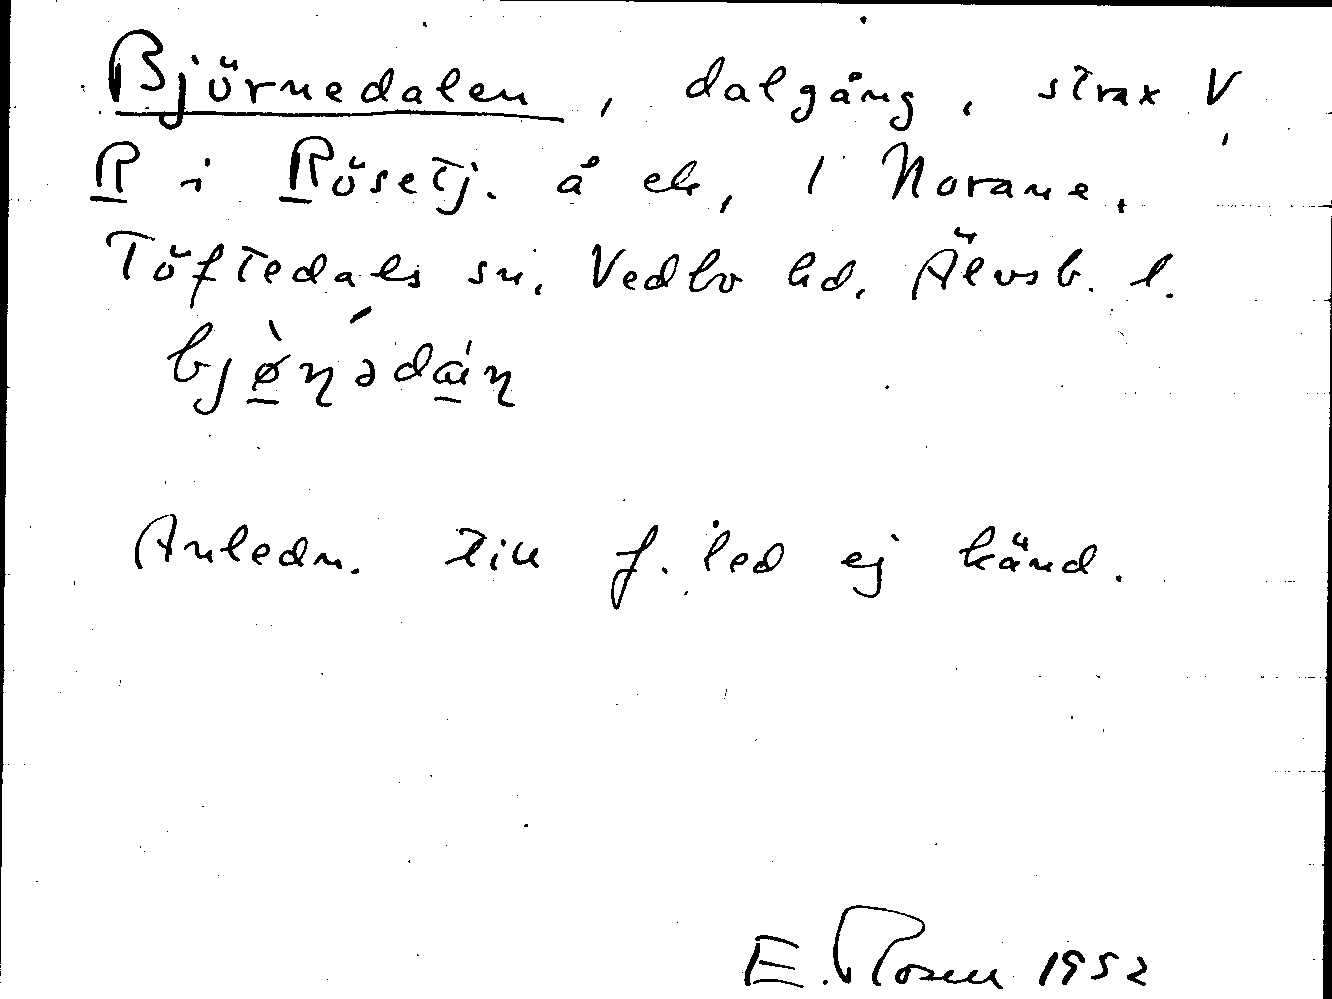 Björnedalen, dalgång, strax V,
R i Rösetj. å ek, 1 Norane,
Töftedals sn. Vedbo hd. Älvsb. l.
bjø̀n̥ədán
Anledn. till f. led ej känd.
E. Rosen 1952